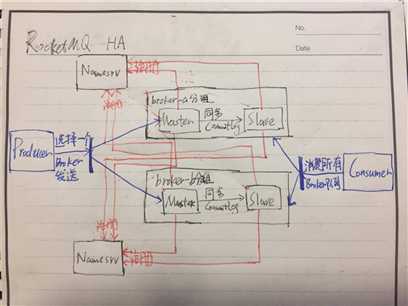 No.
Date
RocketMQ HA
Namesrv
注册
broker-a分组
Master
同步
CommitLog
Slave
Producer
选择一个
Broker
发送
消费所有
Broker队列
Consumer
broker-b分组
Master
同步
CommitLog
Slave
Namesrv
注册